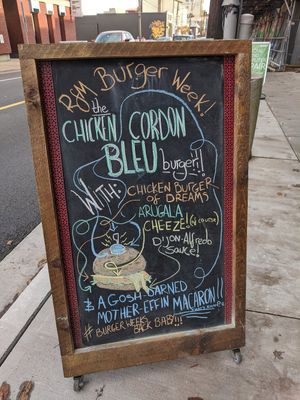 PDX BURGER WEEK!
the
CHICKEN CORDON
BLEU
burger!!
WITH:
CHICKEN BURGER
OF DREAMS
ARUGALA
CHEEZE! (of course)
Dijon-Alfredo
Sauce!
& A GOSH DARNED
MOTHER-EFFIN MACARON!!
# BURGER WEEKS
BACK BABY!!!